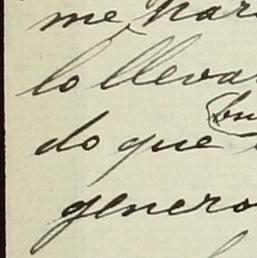 me
lo lleva
do que
genero